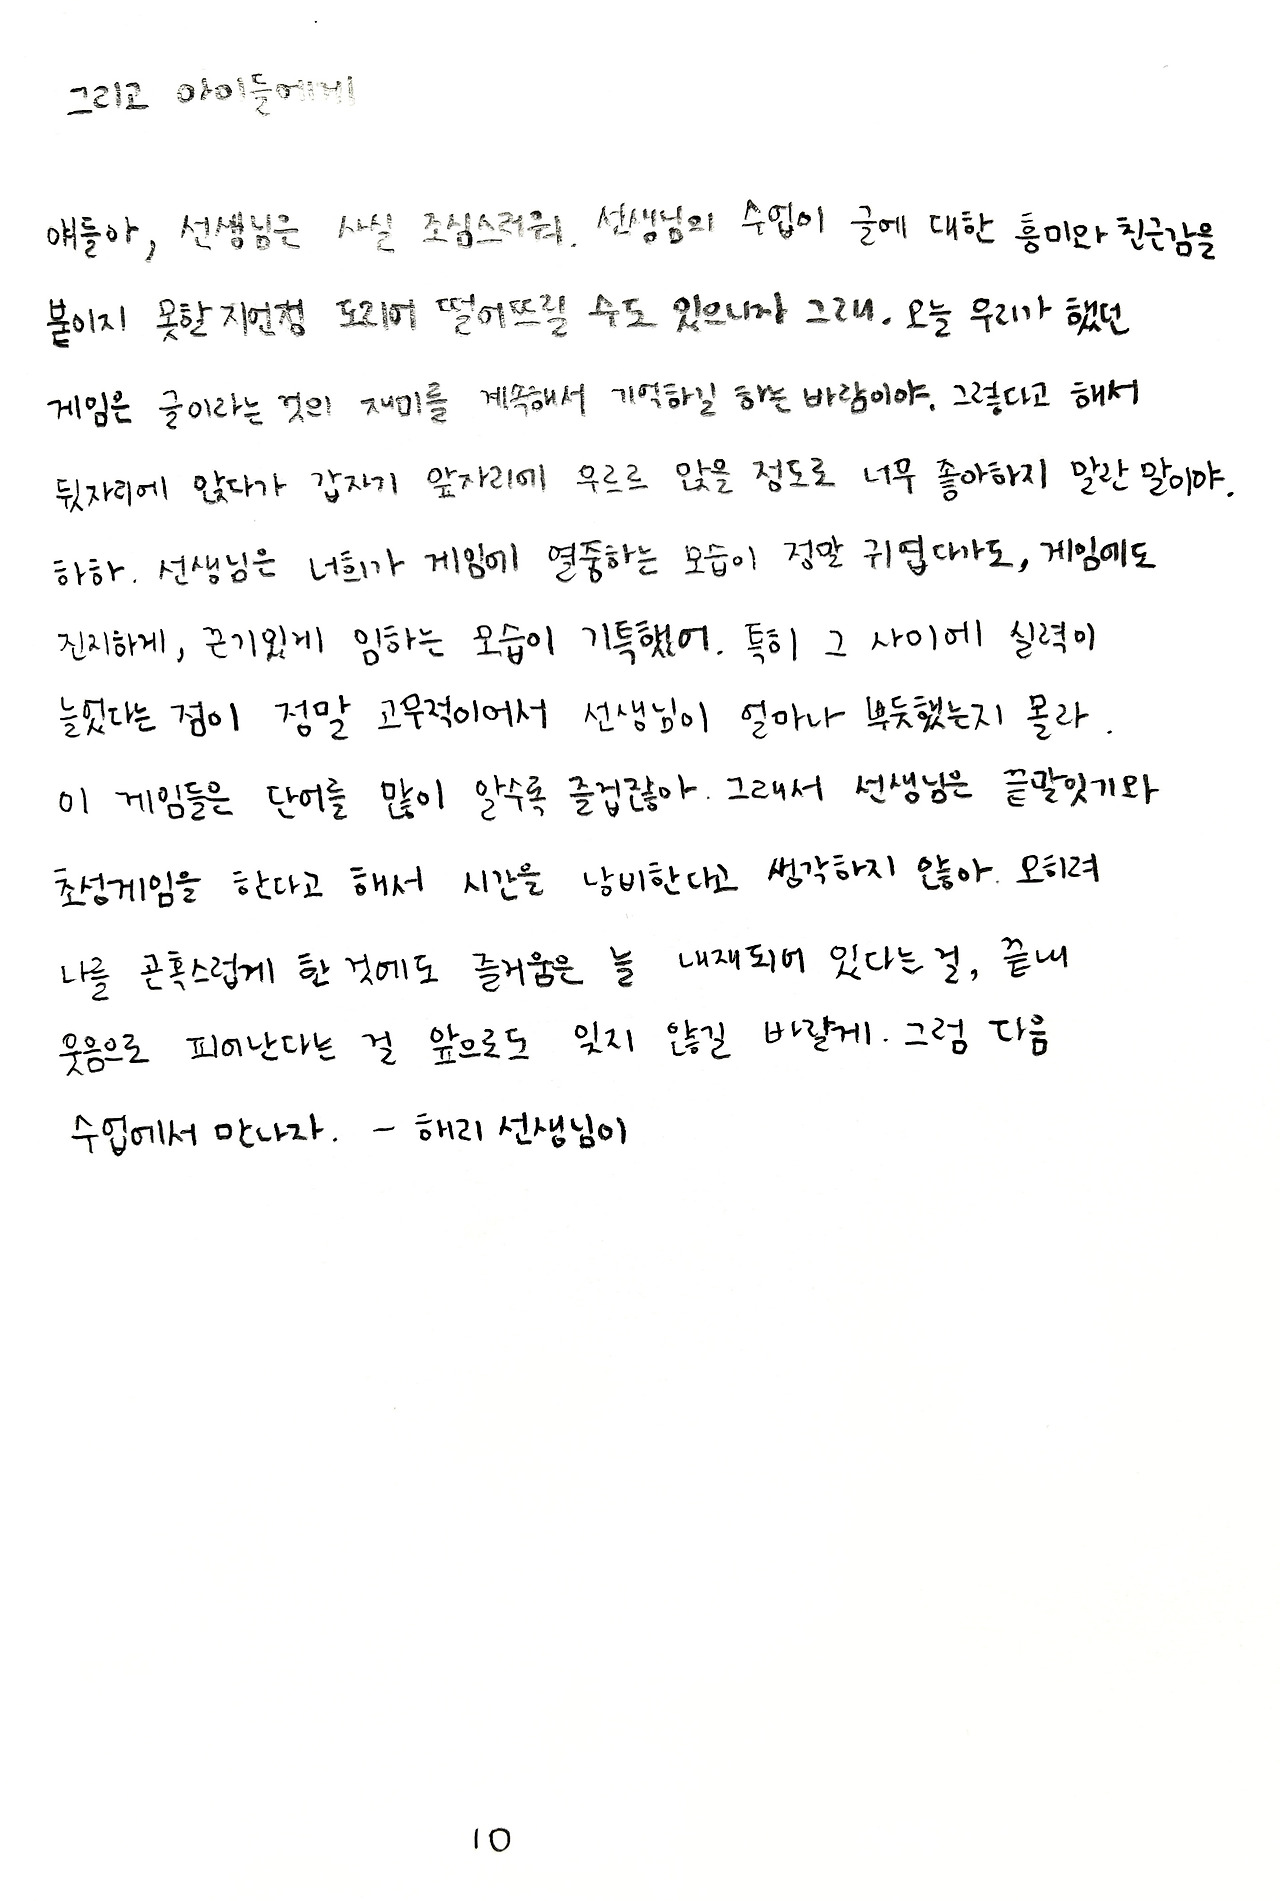 그리고 아이들에게
얘들아, 선생님은 사실 조심스러워. 선생님의 수업이 글에 대한 흥미와 친근감을
붙이지 못할지언정 도리어 떨어뜨릴 수도 있으니까 그래. 오늘 우리가 했던
게임은 글이라는 것의 재미를 계속해서 기억하길 하는 바람이야. 그렇다고 해서
뒷자리에 앉다가 갑자기 앞자리에 우르르 앉을 정도로 너무 좋아하지 말란 말이야.
하하. 선생님은 너희가 게임에 열중하는 모습이 정말 귀엽다가도, 게임에도
진지하게, 끈기있게 임하는 모습이 기특했어. 특히 그 사이에 실력이
늘었다는 점이 정말 고무적이어서 선생님이 얼마나 뿌듯했는지 몰라.
이 게임들은 단어를 많이 알수록 즐겁잖아. 그래서 선생님은 끝말잇기와
초성게임을 한다고 해서 시간을 낭비한다고 생각하지 않아. 오히려
나를 곤혹스럽게 한 것에도 즐거움은 늘 내재되어 있다는 걸, 끝내
웃음으로 피어난다는 걸 앞으로도 잊지 않길 바랄게. 그럼 다음
수업에서 만나자. - 해리 선생님이
10